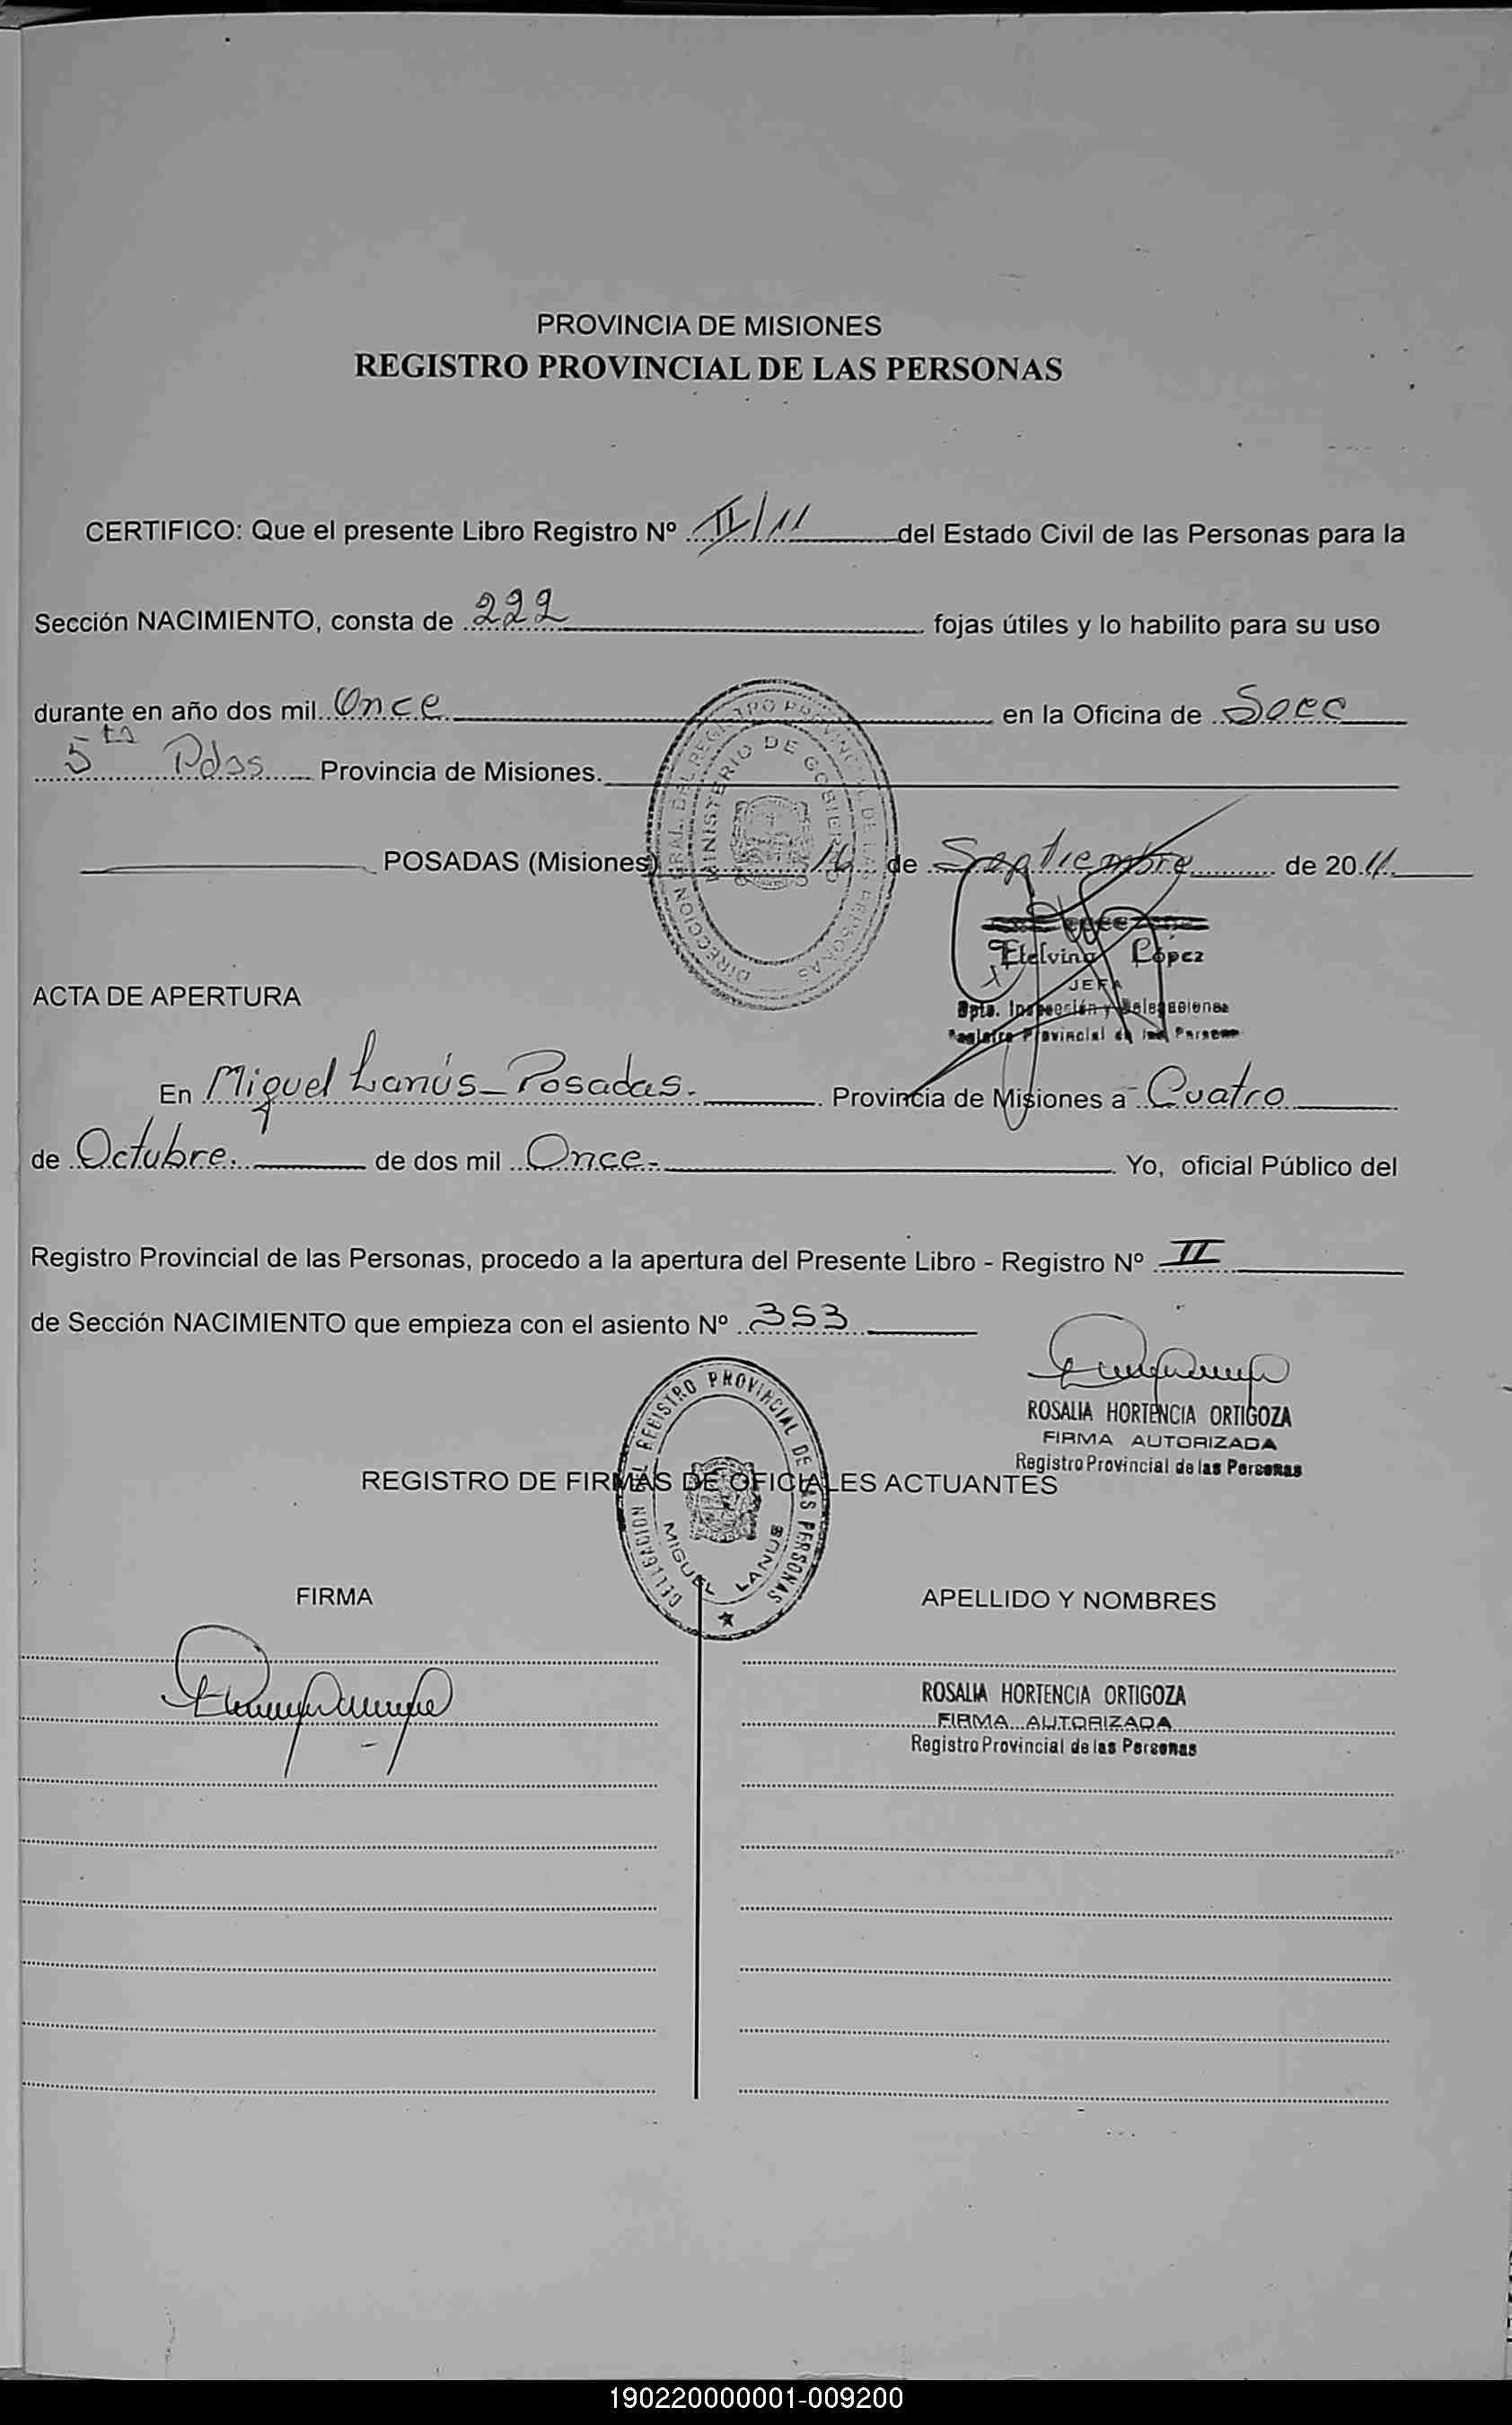 PROVINCIA DE MISIONES
REGISTRO PROVINCIAL DE LAS PERSONAS
CERTIFICO: Que el presente Libro Registro Nº II/11 del Estado Civil de las Personas para la
Sección NACIMIENTO, consta de 222 fojas útiles y lo habilito para su uso
durante en año dos mil Once en la Oficina de Secc
5ta Pdas Provincia de Misiones.
POSADAS (Misiones) 16 de Septiembre de 2011
DIRECCION GRAL. DEL REGISTRO PROVINCIAL DE LAS PERSONAS
MINISTERIO DE GOBIERNO
Etelvina López
JEFA
Dpto. Inspección y Delegaciones
Registro Provincial de las Personas
ACTA DE APERTURA
En Miguel Lanús - Posadas. Provincia de Misiones a Cuatro
de Octubre. de dos mil Once- Yo, oficial Público del
Registro Provincial de las Personas, procedo a la apertura del Presente Libro - Registro Nº II
de Sección NACIMIENTO que empieza con el asiento Nº 353
ROSALIA HORTENCIA ORTIGOZA
FIRMA AUTORIZADA
Registro Provincial de las Personas
REGISTRO DE FIRMAS DE OFICIALES ACTUANTES
REGISTRO PROVINCIAL DE LAS PERSONAS
MIGUEL LANUS
FIRMA APELLIDO Y NOMBRES
ROSALIA HORTENCIA ORTIGOZA
FIRMA AUTORIZADA
Registro Provincial de las Personas
190220000001-009200